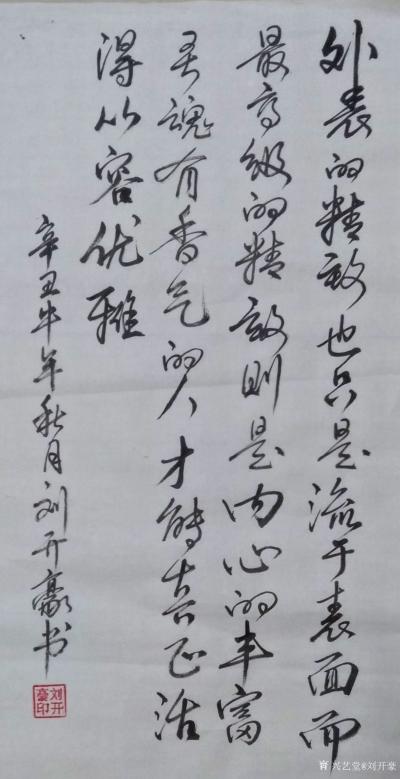 外表的精致也只是流于表面而
最高级的精致则是内心的丰富
灵魂有香气的人才能真正活
得从容优雅
辛丑牛年秋月刘开豪书
刘开豪印
兴艺堂@刘开豪